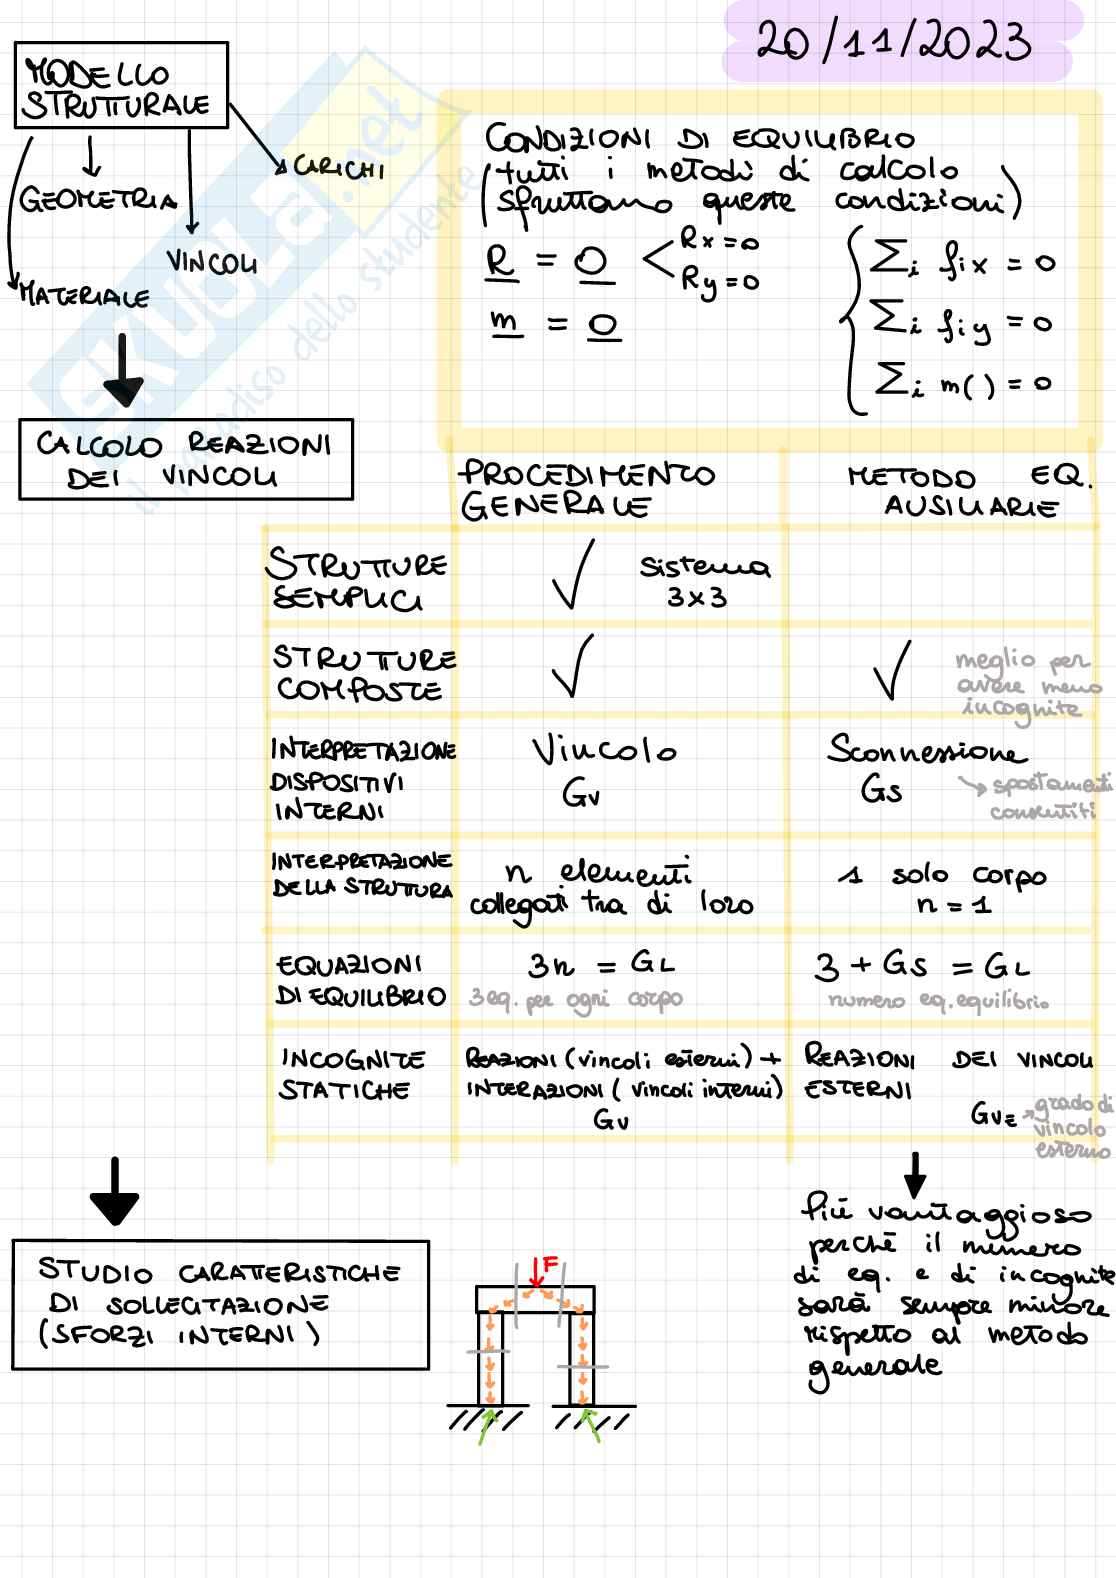 20/11/2023
MODELLO
STRUTTURALE
CARICHI
GEOMETRIA
VINCOLI
MATERIALE
CONDIZIONI DI EQUILIBRIO
(tutti i metodi di calcolo
sfruttano queste condizioni)
R = 0 < Rx = 0
Ry = 0
m = 0
{ Σi fix = 0
Σi fiy = 0
Σi m( ) = 0
CALCOLO REAZIONI
DEI VINCOLI
PROCEDIMENTO
GENERALE
METODO EQ.
AUSILIARIE
STRUTTURE
SEMPLICI
✓ Sistema
3x3
STRUTTURE
COMPOSTE
✓
✓ meglio per
avere meno
incognite
INTERPRETAZIONE
DISPOSITIVI
INTERNI
Vincolo
Gv
Sconnessione
Gs → spostamenti
consentiti
INTERPRETAZIONE
DELLA STRUTTURA
n elementi
collegati tra di loro
1 solo corpo
n = 1
EQUAZIONI
DI EQUILIBRIO
3n = GL
3 eq. per ogni corpo
3 + Gs = GL
numero eq. equilibrio
INCOGNITE
STATICHE
REAZIONI (vincoli esterni) +
INTERAZIONI (vincoli interni)
Gv
REAZIONI DEI VINCOLI
ESTERNI
GvE → grado di
vincolo
esterno
più vantaggioso
perchè il numero
di eq. e di incognite
sarà sempre minore
rispetto al metodo
generale
STUDIO CARATTERISTICHE
DI SOLLECITAZIONE
(SFORZI INTERNI)
F
SKUOLA.net
il paradiso dello studente